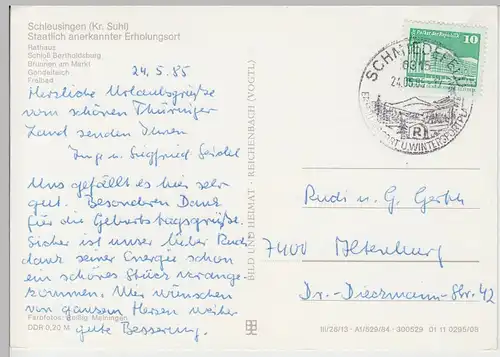 Schleusingen (Kr. Suhl)
Staatlich anerkannter Erholungsort
Rathaus
Schloß Bertholdsburg
Brunnen am Markt
Gondelteich
Freibad
24.5.85
Herzliche Urlaubsgrüße
vom schönen Thüringer
Land senden Ihnen
Inge u. Siegfried Seidel
Uns gefällt es hier sehr
gut. Besonderen Dank
für die Geburtstagsgrüße.
Sicher ist unser lieber Rudi
dank seiner Energie schon
ein schönes Stück vorange-
kommen. Wir wünschen
von ganzem Herzen weiter
gute Besserung.
Farbfotos: Meiningen
DDR 0,20 M
BILD UND HEIMAT · REICHENBACH (VOGTL)
10
SCHMIEDEFELD
24.05.85
ERHOLUNGSORT U. WINTERSPORTPLATZ
R
Rudi u. G. Gerth
7400 Altenburg
Dr.-Diezmann-Str. 42
III/26/13 · A1/529/84 · 300529 01 11 0295/09